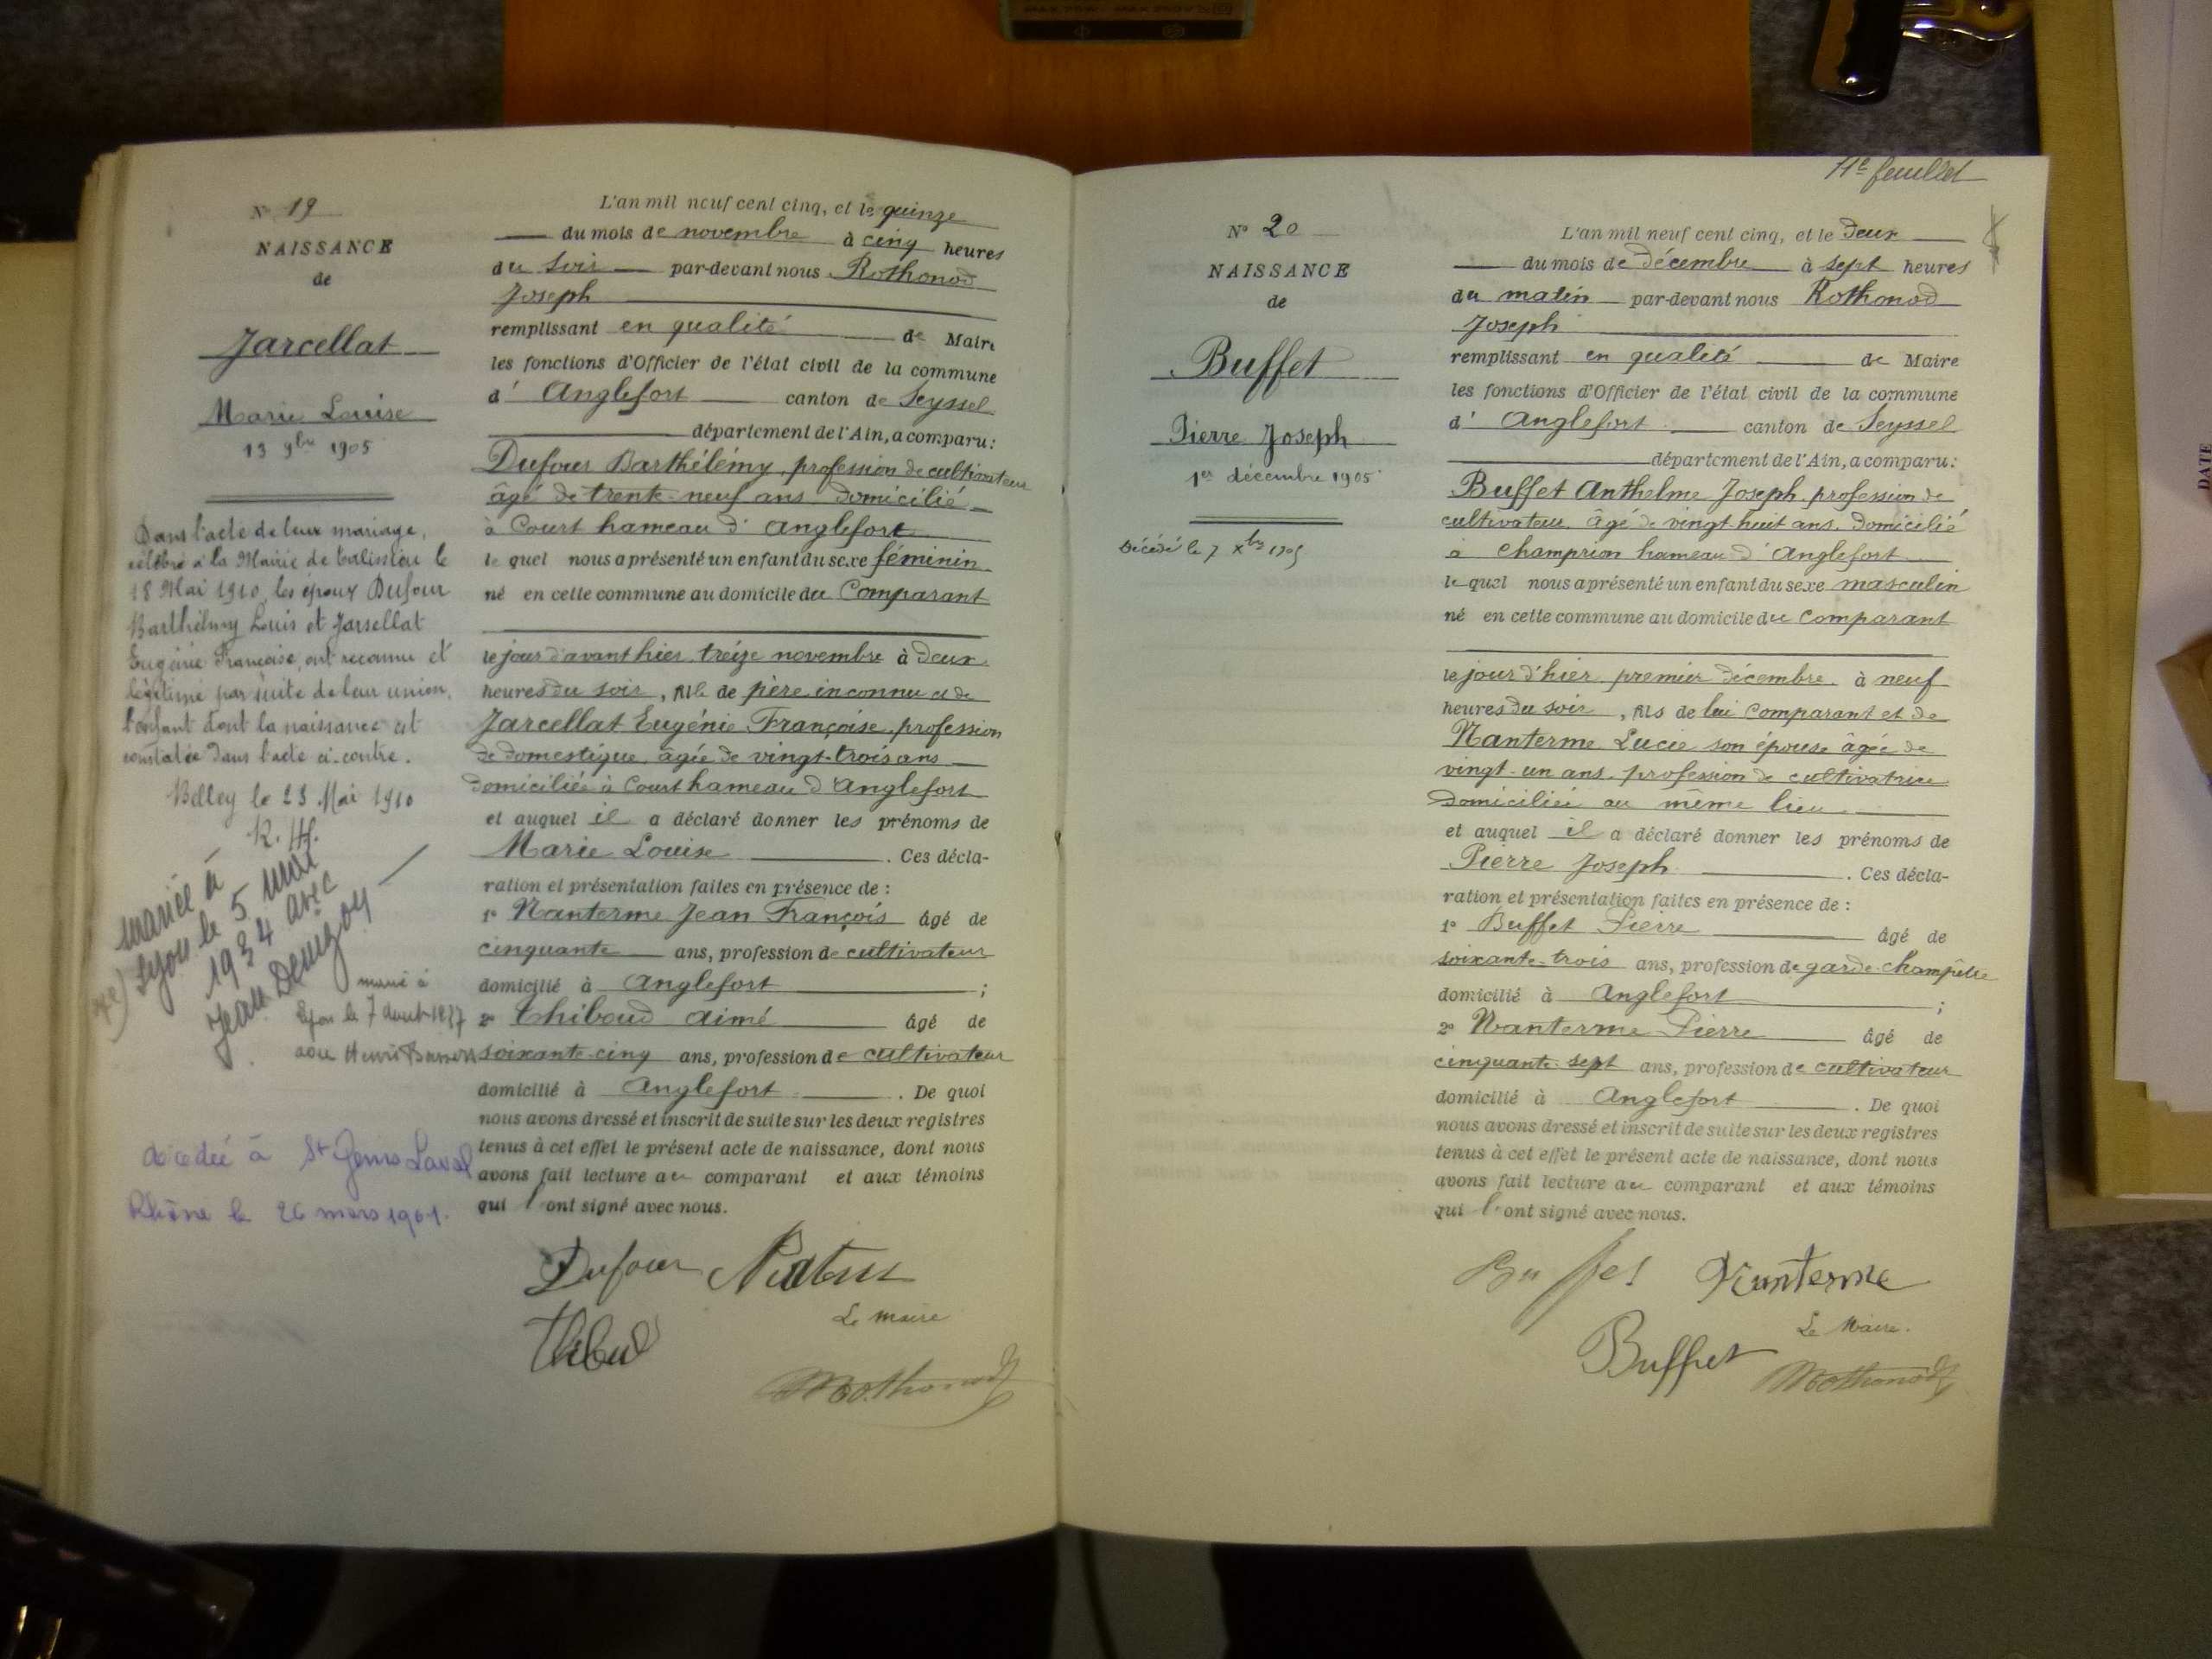 N° 19
NAISSANCE
de
Jarcellat
Marie Louise
13 9bre 1905
Dans l'acte de leur mariage,
célébré à la Mairie de le
18 Mai 1910, les époux Dufour
Barthélemy Louis et Jarsellat
Eugénie Françoise, ont reconnu et
légitimé par suite de leur union,
l'enfant dont la naissance est
constatée dans l'acte ci-contre.
Belley le 23 Mai 1910
mariée à
Lyon le 5 mai
1934 avec
Jean
marié à
Lyon le 7
avec Henri
décédée à St Genis Laval
Rhône le 26 mars 1961.
L'an mil neuf cent cinq, et le quinze
du mois de novembre à cinq heures
du soir par-devant nous Rothonod
Joseph
remplissant en qualité de Maire
les fonctions d'Officier de l'état civil de la commune
d' Anglefort canton de Seyssel
département de l'Ain, a comparu:
Dufour Barthélémy, profession de cultivateur
âgé de trente-neuf ans domicilié
à Court hameau d'Anglefort
lequel nous a présenté un enfant du sexe féminin
né en cette commune au domicile du Comparant
le jour d'avant hier treize novembre à deux
heures du soir, fils de père inconnu et de
Jarcellat Eugénie Françoise, profession
de domestique, âgée de vingt-trois ans
domiciliée à Court hameau d'Anglefort
et auquel il a déclaré donner les prénoms de
Marie Louise . Ces décla-
ration et présentation faites en présence de :
1° Nanterme Jean François âgé de
cinquante ans, profession de cultivateur
domicilié à Anglefort ;
2° Thiboud Aimé âgé de
soixante-cinq ans, profession de cultivateur
domicilié à Anglefort . De quoi
nous avons dressé et inscrit de suite sur les deux registres
tenus à cet effet le présent acte de naissance, dont nous
avons fait lecture au comparant et aux témoins
qui l'ont signé avec nous.
Dufour
Le maire
Rothonod
11e feuillet
N° 20
NAISSANCE
de
Buffet
Pierre Joseph
1er décembre 1905
Décédé le 7 Xbre 1905
L'an mil neuf cent cinq, et le deux
du mois de décembre à sept heures
du matin par-devant nous Rothonod
Joseph
remplissant en qualité de Maire
les fonctions d'Officier de l'état civil de la commune
d' Anglefort canton de Seyssel
département de l'Ain, a comparu:
Buffet Anthelme Joseph profession de
cultivateur, âgé de vingt-huit ans, domicilié
à Champrion hameau d'Anglefort
lequel nous a présenté un enfant du sexe masculin
né en cette commune au domicile du Comparant
le jour d'hier premier décembre à neuf
heures du soir, fils de lui Comparant et de
Nanterme Lucie son épouse âgée de
vingt-un ans, profession de cultivatrice
domiciliée au même lieu
et auquel il a déclaré donner les prénoms de
Pierre Joseph . Ces décla-
ration et présentation faites en présence de :
1° Buffet Pierre âgé de
soixante-trois ans, profession de garde-champêtre
domicilié à Anglefort ;
2° Nanterme Pierre âgé de
cinquante-sept ans, profession de cultivateur
domicilié à Anglefort . De quoi
nous avons dressé et inscrit de suite sur les deux registres
tenus à cet effet le présent acte de naissance, dont nous
avons fait lecture au comparant et aux témoins
qui l'ont signé avec nous.
Buffet Nanterme
Le Maire.
Buffet Rothonod
DATE